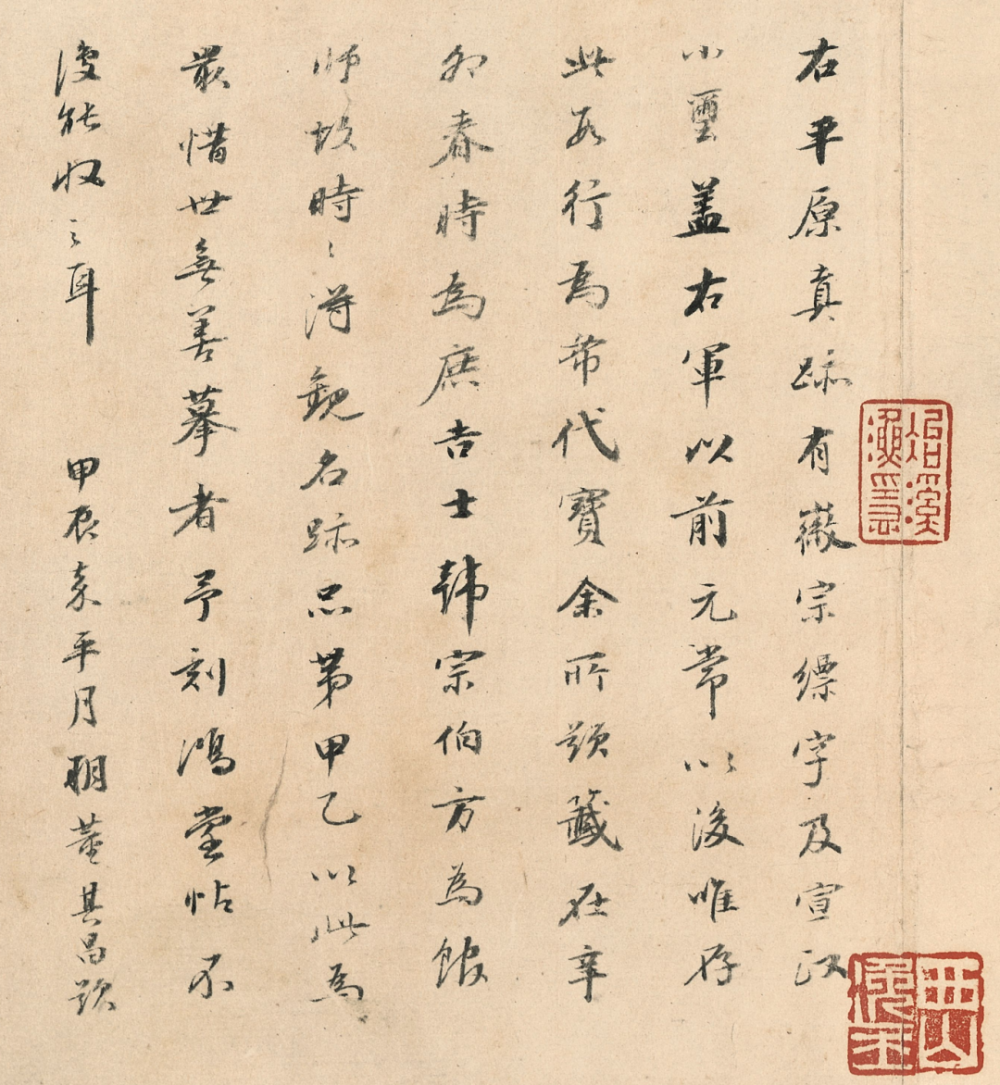 右平原真跡有徽宗縹字及宣政
小璽盖右軍以前元常以後唯存
此數行為希代寶余所題籖在辛
卯春時為庶吉士韓宗伯方為館
師故時時得觀名跡品第甲乙以此為
最惜世無善摹者予刻鴻堂帖不
復能收之耳 甲辰嘉平月朔董其昌題
治溪漁隱
西山逸士